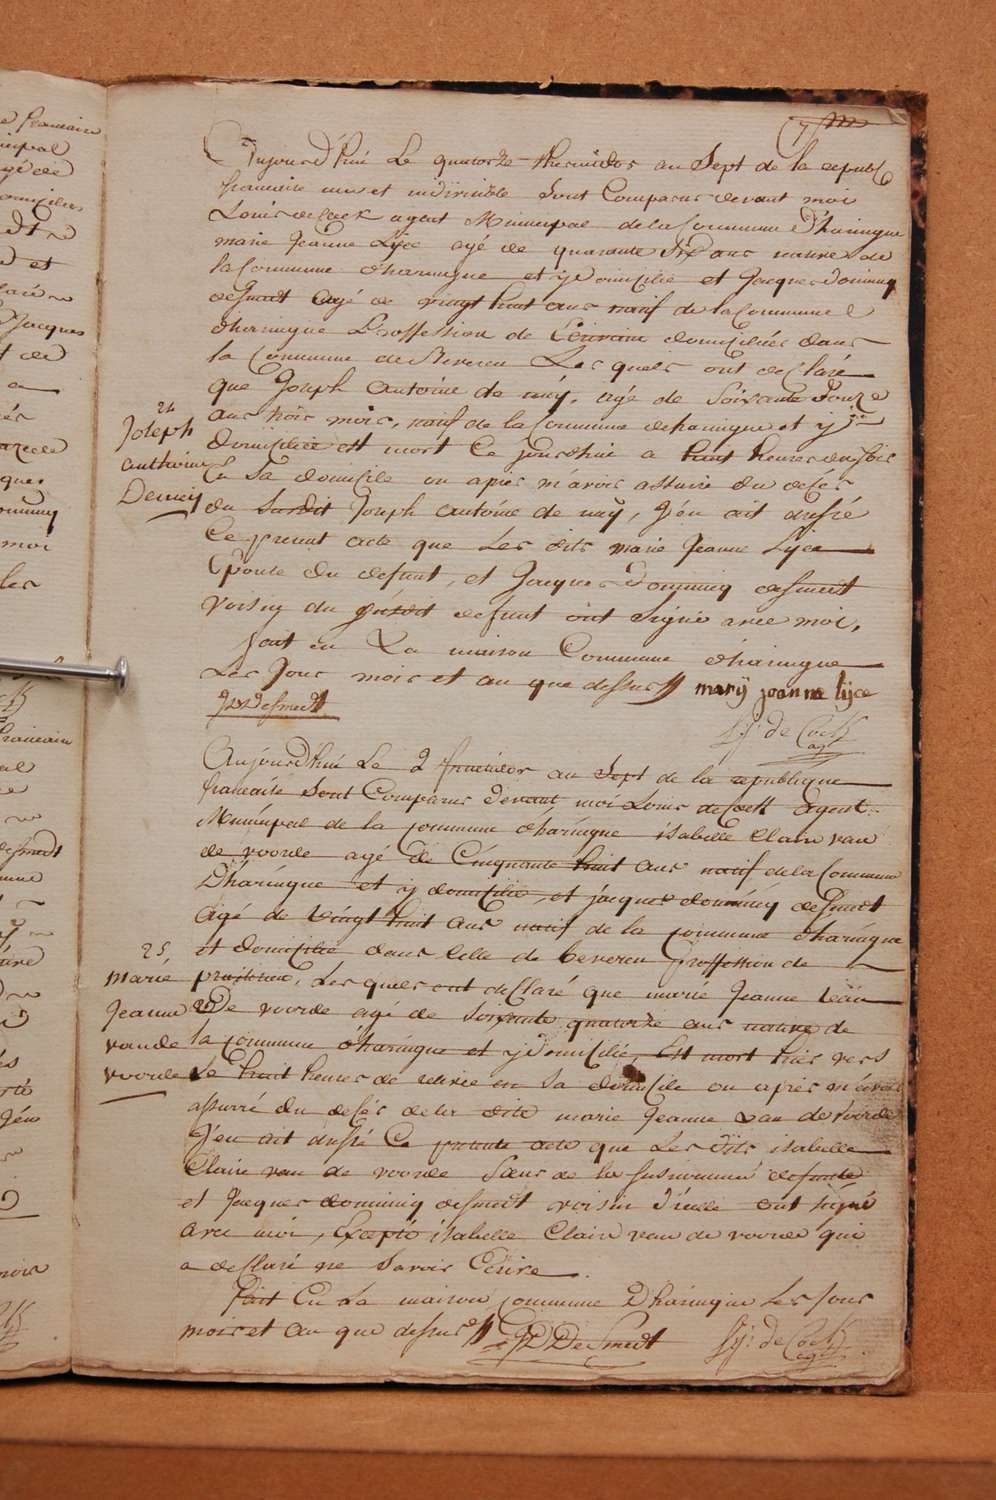 Aujourd'hui Le quatorze thermidor an Sept de la republ
francaise une et indivisible Sont Comparus devant moi
Louis de Cock agent Municipal de la Commune d'haringue
marie Jeanne Lyce agé de quarante Six ans native de
la Commune d'haringue et y domicilie et Jacques Dominiq
desmedt agé de vingt huit ans natif de la Commune
d'haringue Proffession de Ecrivain domiciliée dans
la Commune de Beveren Les quels ont declaré
que Joseph Antoine de mey, agé de Soixante Douze
ans trois mois, natif de la Commune deharingue et y
domiciliée est mort Ce jourdhui a huit heures du soir
En Sa domicile ou apres m'avoir assuré du decés
du Susdit Joseph antoine de mey, J'en ait dressé
Ce present acte que Les dits marie Jeanne Lyce
Epouse du defunt, et Jacques Dominiq desmedt
Voisin du susdit defunt ont Signé avec moi,
fait en La maison Commune d'haringue
Les Jour mois et an que dessus // marij joanna lijce
JD Desmedt
Sy: de Cock
agt
24
Joseph
anthoine
Demeij
Aujourd'hui Le 2 fructidor an Sept de la republique
francaise Sont Comparus devant moi Louis de Cock agent
Municipal de la Commune d'haringue isabelle Claire van
de voorde agé de Cinquante huit ans natif de la Commune
D'haringue et y domicilie, et jacques dominiq desmedt
agé de vingt huit ans natif de la commune d'haringue
et domicilie dans Celle de beveren proffession de
praticien, Les quels ont declaré que marie Jeanne van
De voorde agé de soixante quatorze ans native de
la commune d'haringue et y domicilie, Est mort hier vers
Le huit heures de relevée en Sa domicile ou apres m'avoir
assurré du decés de la dite marie Jeanne van de voorde
J'en ait dressé Ce presente acte que Les dits isabelle
Claire van de voorde Sœur de la susnommé defunte
et Jacques dominiq desmedt voisin d'icelle ont signé
avec moi, Excepté isabelle Claire van de voorde qui
a declaré ne Savoir Ecrire
fait En La maison commune D'haringue Les Jour
mois et an que dessus // JD DeSmedt Sy: de Cock
agt
25
Marie
Jeanne
vande
voorde